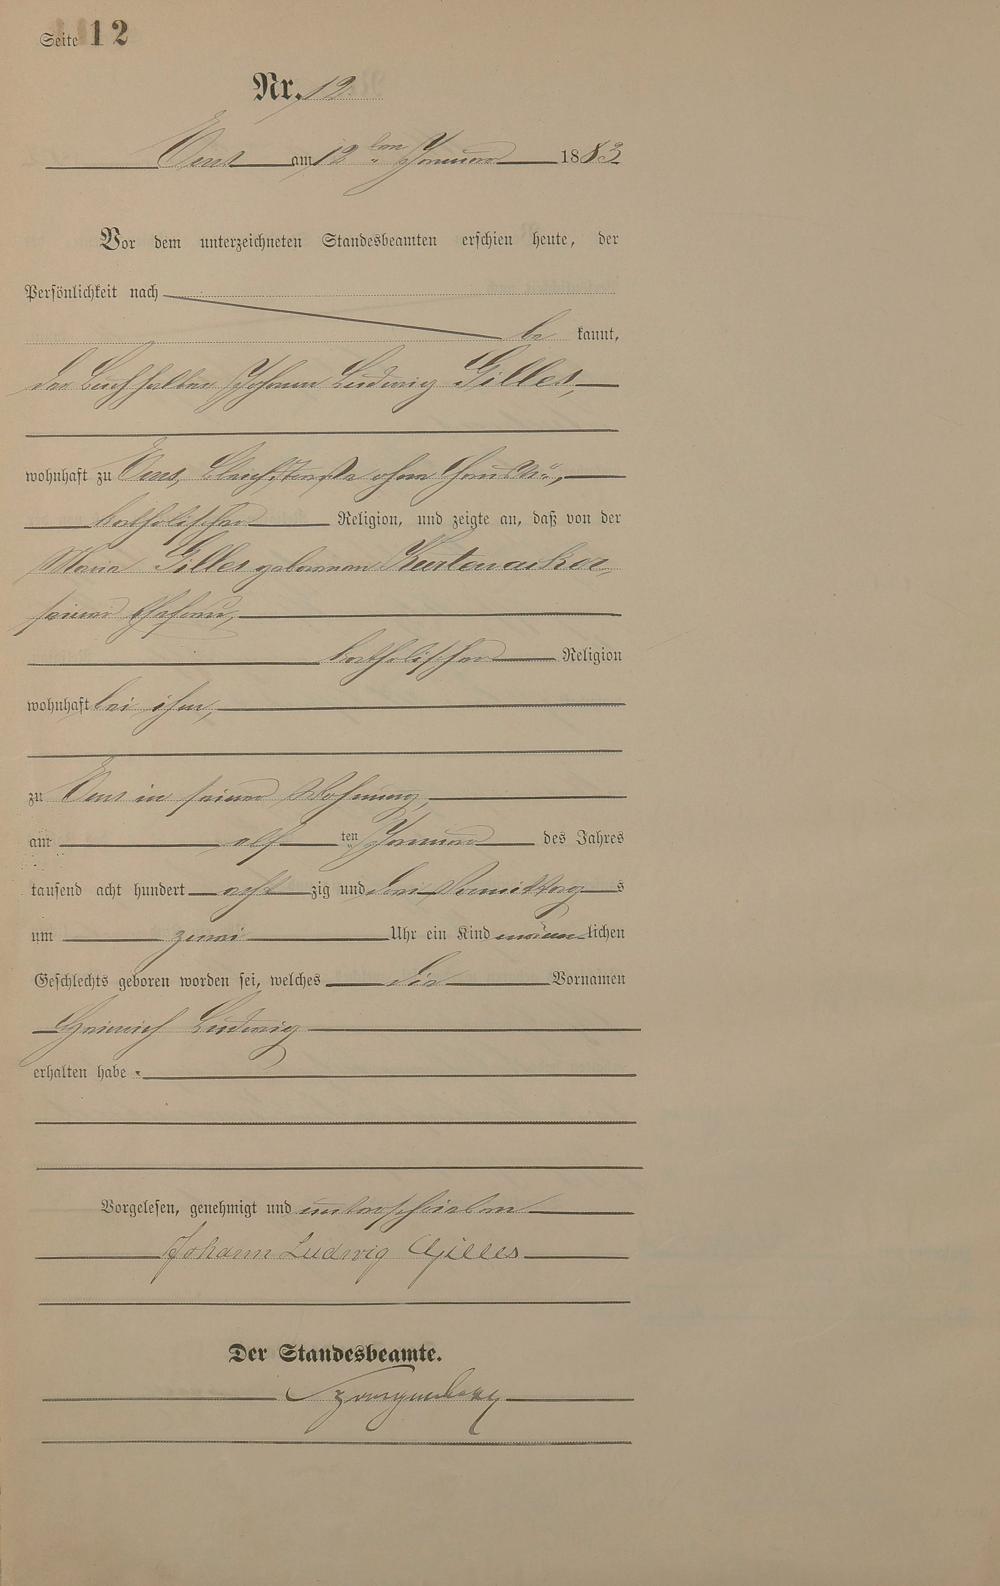 Seite 12
Nr. 12.
Ems am 12 ten Januar 1883
Vor dem unterzeichneten Standesbeamten erschien heute, der
Persönlichkeit nach
be kannt,
der Buchhalter Johann Ludwig Gilles,
wohnhaft zu Ems, Bleichstraße ohne Haus Nr.,
katholischer Religion, und zeigte an, daß von der
Maria Gilles geborenen Kurtenacker,
seiner Ehefrau,
katholischer Religion
wohnhaft bei ihm,
zu Ems in seiner Wohnung,
am elf ten Januar des Jahres
tausend acht hundert acht zig und drei Vormittag s
um zwei Uhr ein Kind männ lichen
Geschlechts geboren worden sei, welches die Vornamen
Heinrich Ludwig
erhalten habe.
Vorgelesen, genehmigt und unterschrieben
Johann Ludwig Gilles
Der Standesbeamte.